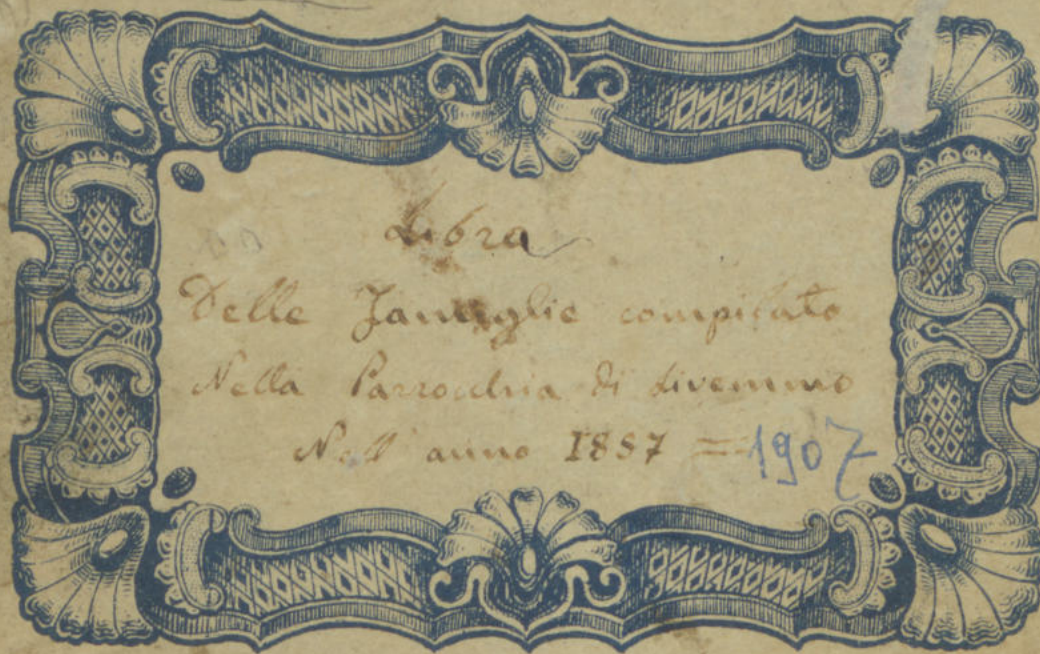 Libro
Delle Famiglie compilato
Nella Parrocchia di Livemmo
Nell' anno 1887 = 1907